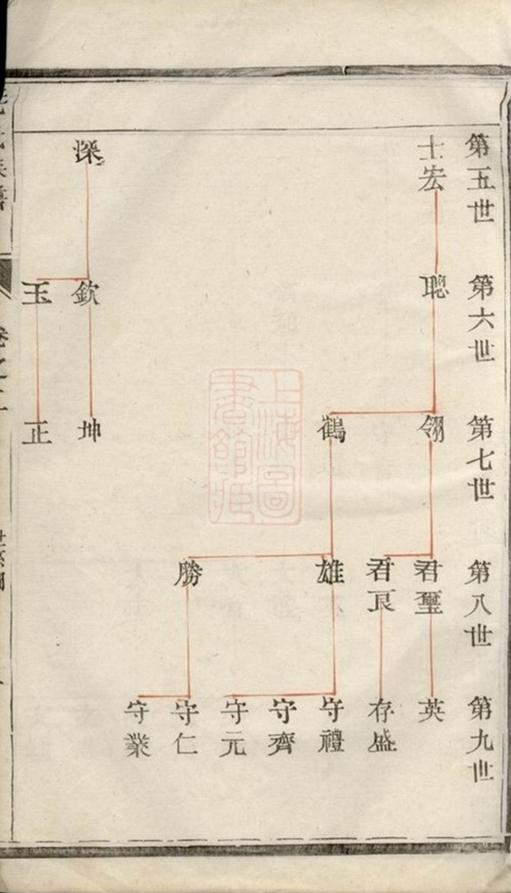 第五世
士宏
深
第六世
聰
欽
玉
第七世
翎
鶴
坤
正
第八世
君璽
君良
雄
勝
第九世
英
存盛
守禮
守齊
守元
守仁
守業
上海圖書館藏